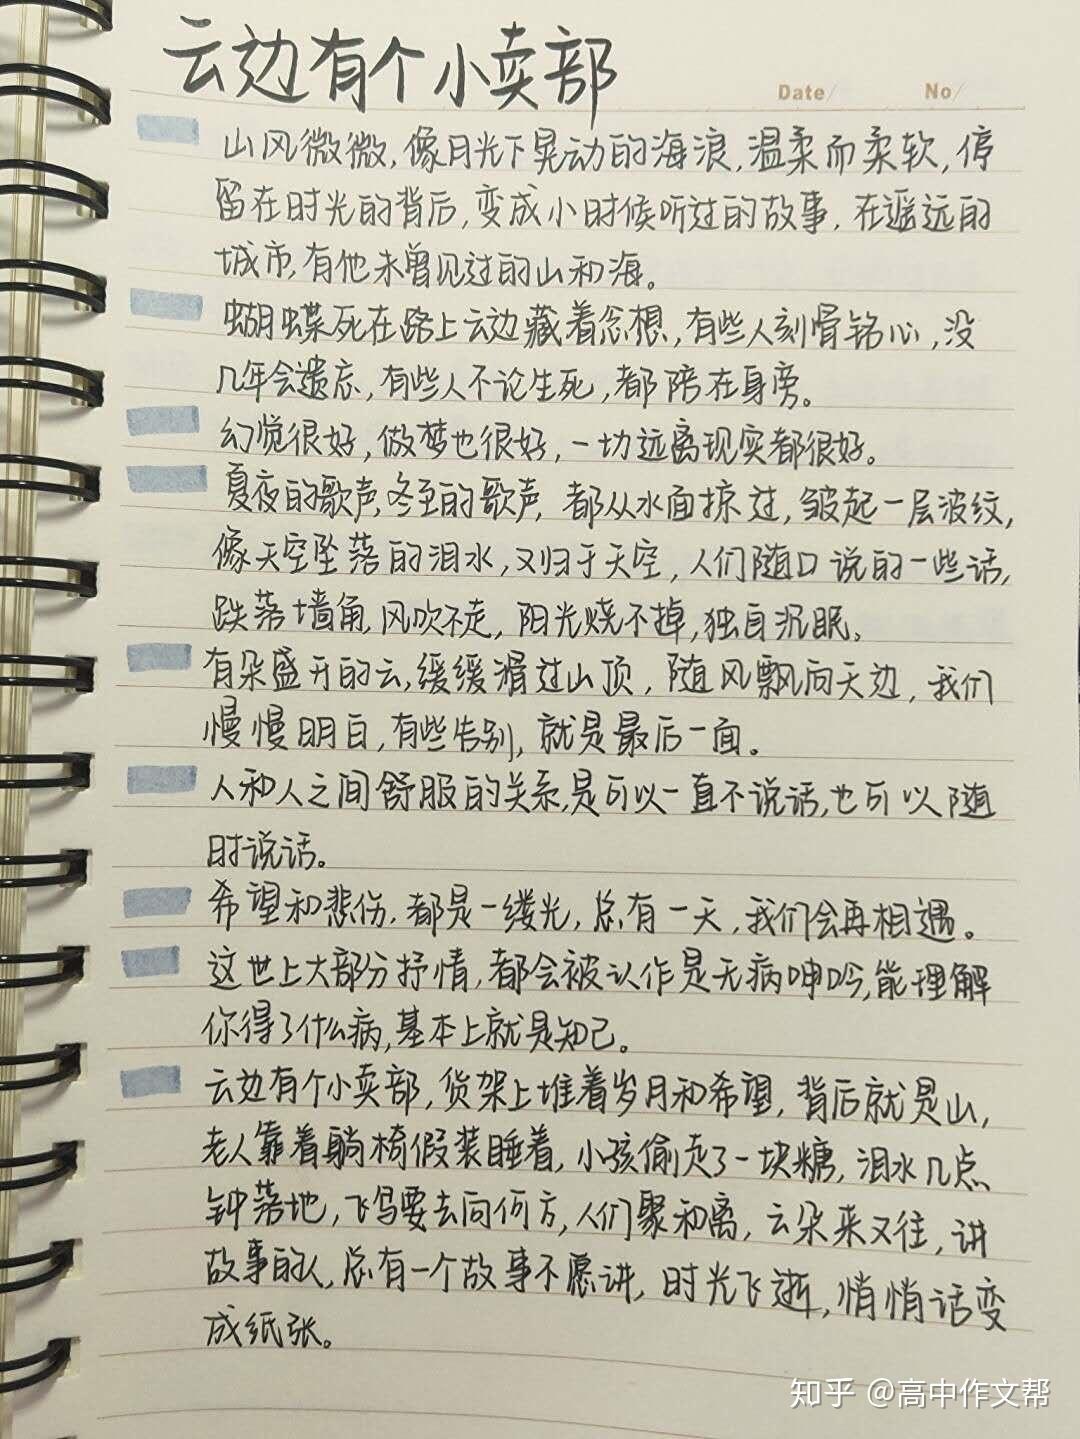 云边有个小卖部
Date/ No/
山风微微,像月光下晃动的海浪,温柔而柔软,停
留在时光的背后,变成小时候听过的故事,在遥远的
城市,有他未曾见过的山和海。
蝴蝶死在路上云边藏着念想,有些人刻骨铭心,没
几年会遗忘,有些人不论生死,都陪在身旁。
幻觉很好,做梦也很好,一切远离现实都很好。
夏夜的歌声,冬至的歌声,都从水面掠过,皱起一层波纹,
像天空坠落的泪水,又归于天空,人们随口说的一些话,
跌落墙角,风吹不走,阳光烧不掉,独自沉眠。
有朵盛开的云,缓缓滑过山顶,随风飘向天边,我们
慢慢明白,有些告别,就是最后一面。
人和人之间舒服的关系,是可以一直不说话,也可以随
时说话。
希望和悲伤,都是一缕光,总有一天,我们会再相遇。
这世上大部分抒情,都会被认作是无病呻吟,能理解
你得了什么病,基本上就是知己。
云边有个小卖部,货架上堆着岁月和希望,背后就是山,
老人靠着躺椅假装睡着,小孩偷走了一块糖,泪水几点
钟落地,飞鸟要去向何方,人们聚和离,云朵来又往,讲
故事的人,总有一个故事不愿讲,时光飞逝,悄悄话变
成纸张。
知乎 @高中作文帮